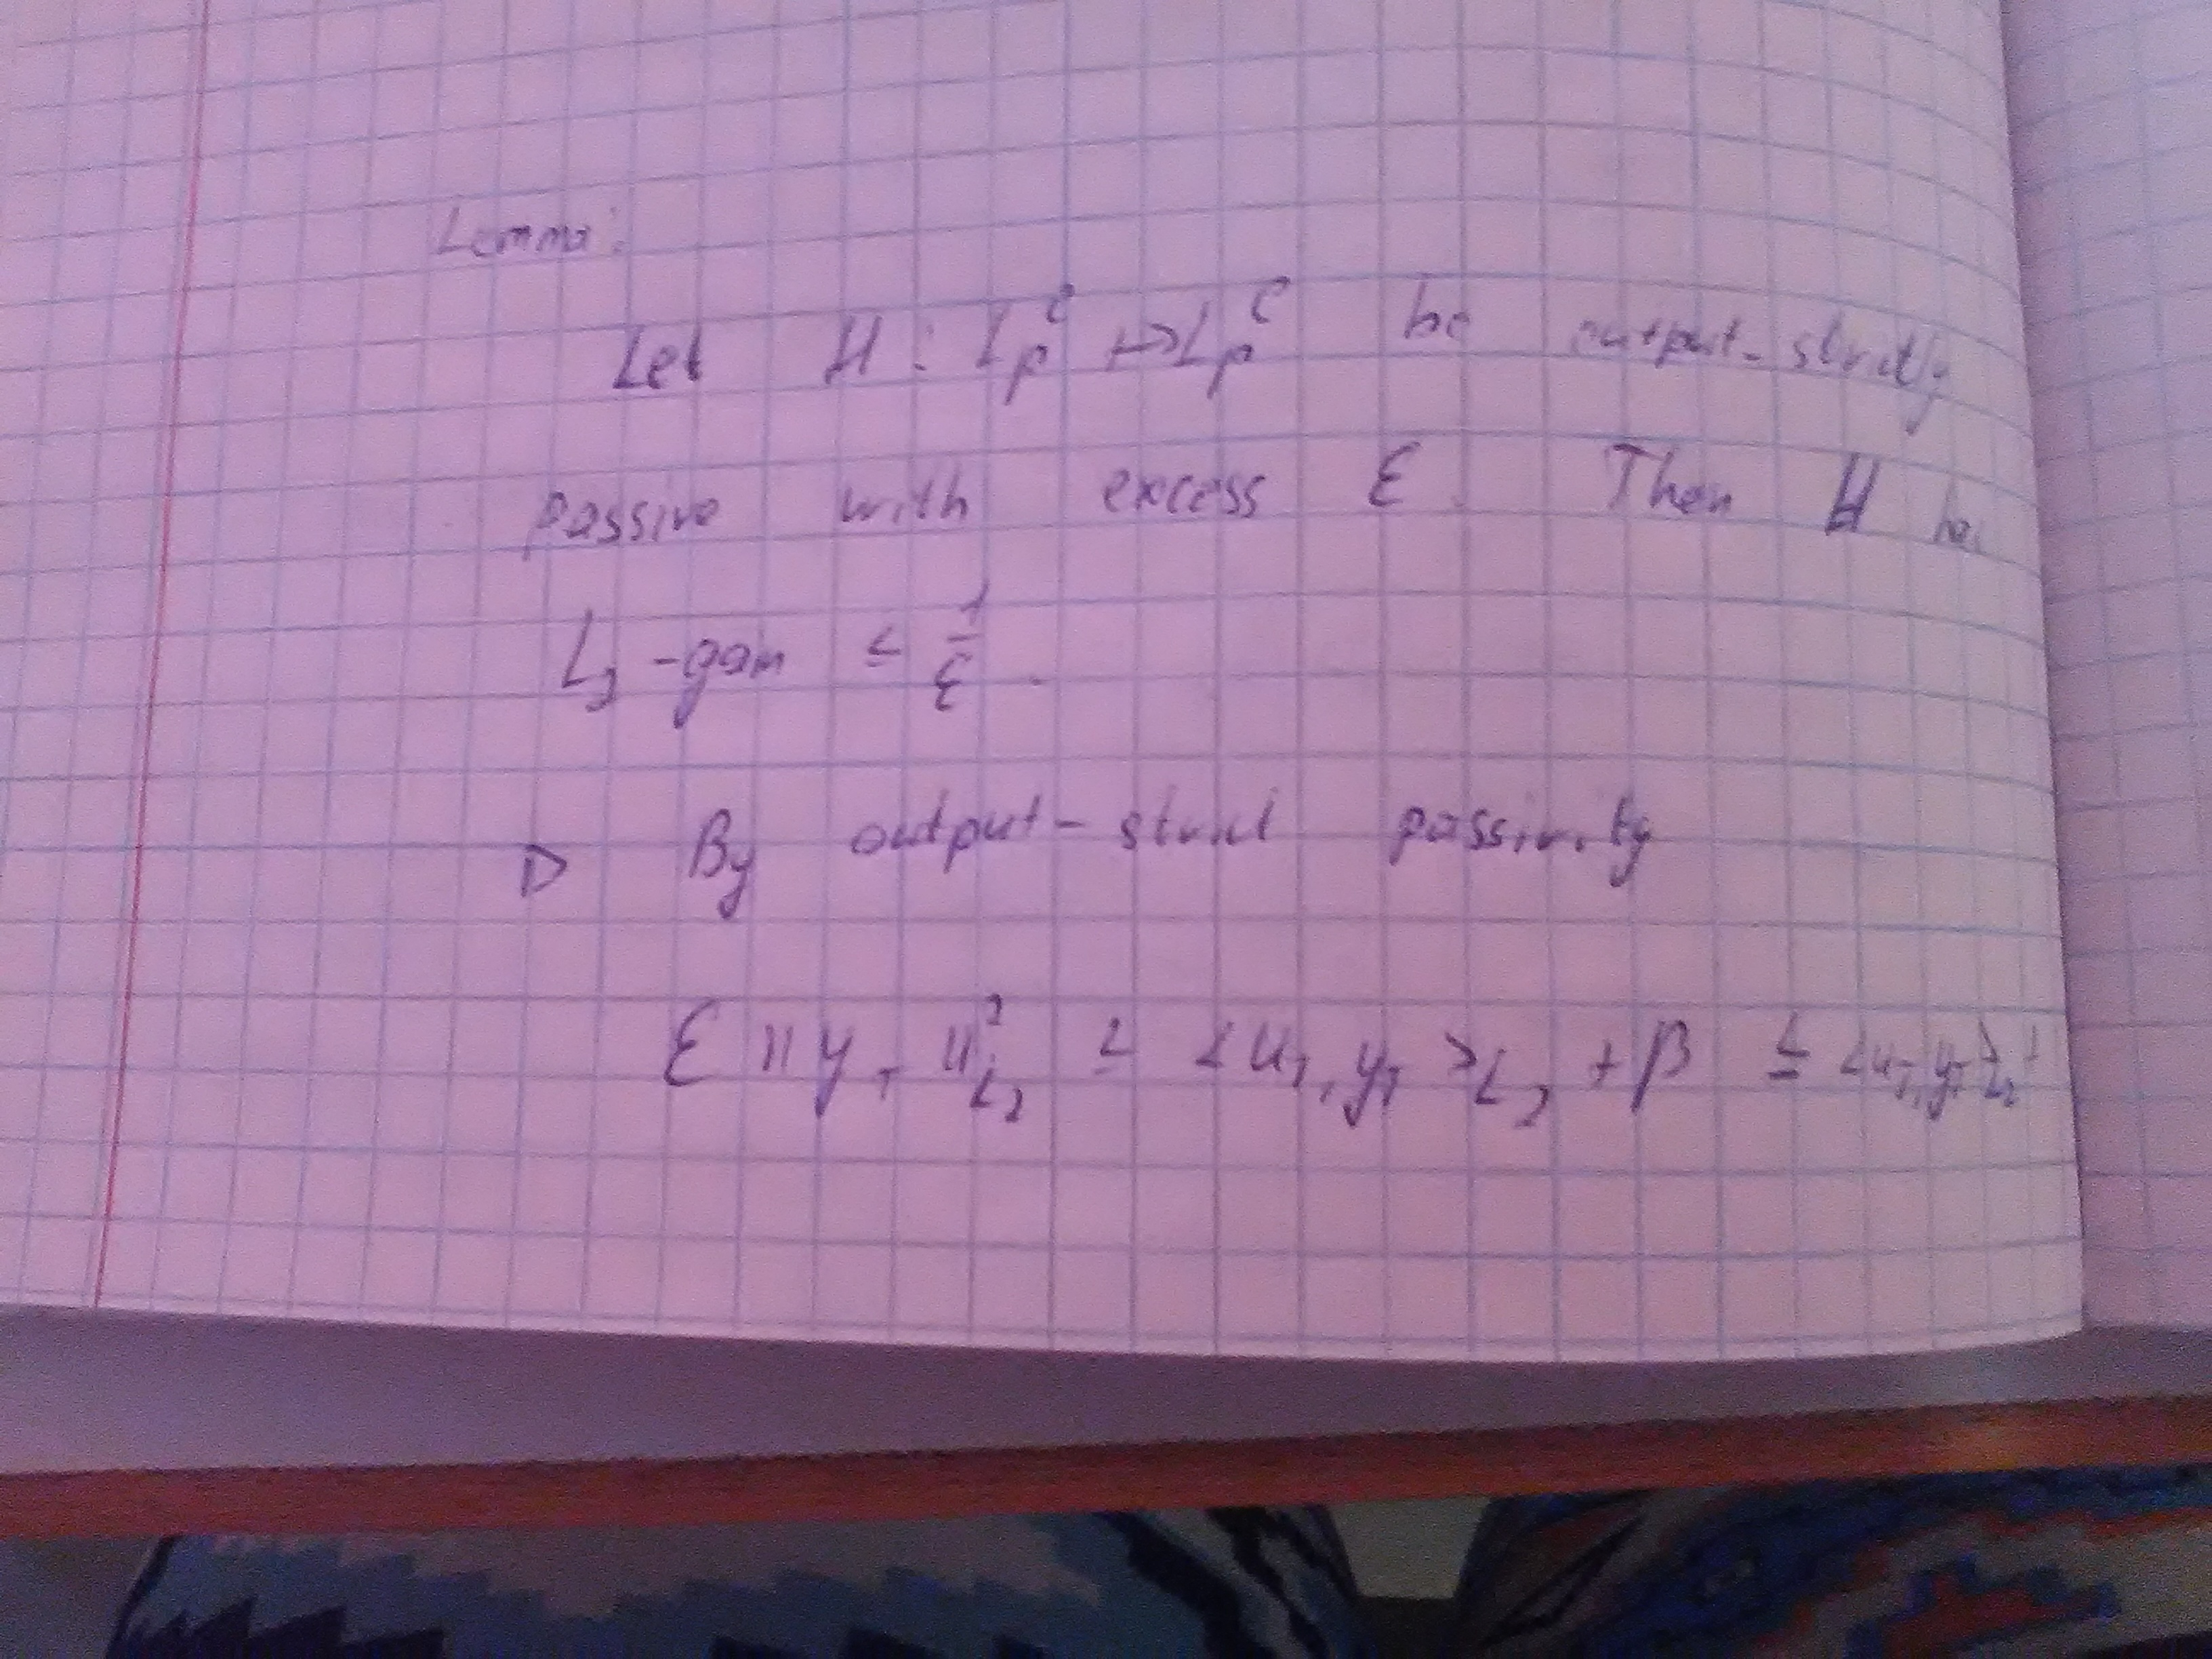 Lemma:
Let H : L_p^e ↦ L_p^e be output-strictly
passive with excess ε. Then H has
L_2-gain ≤ 1/ε.
▷ By output-strict passivity
ε ||y_T||²_{L_2} ≤ <u_T, y_T>_{L_2} + β ≤ <u_T, y_T>_{L_2} +